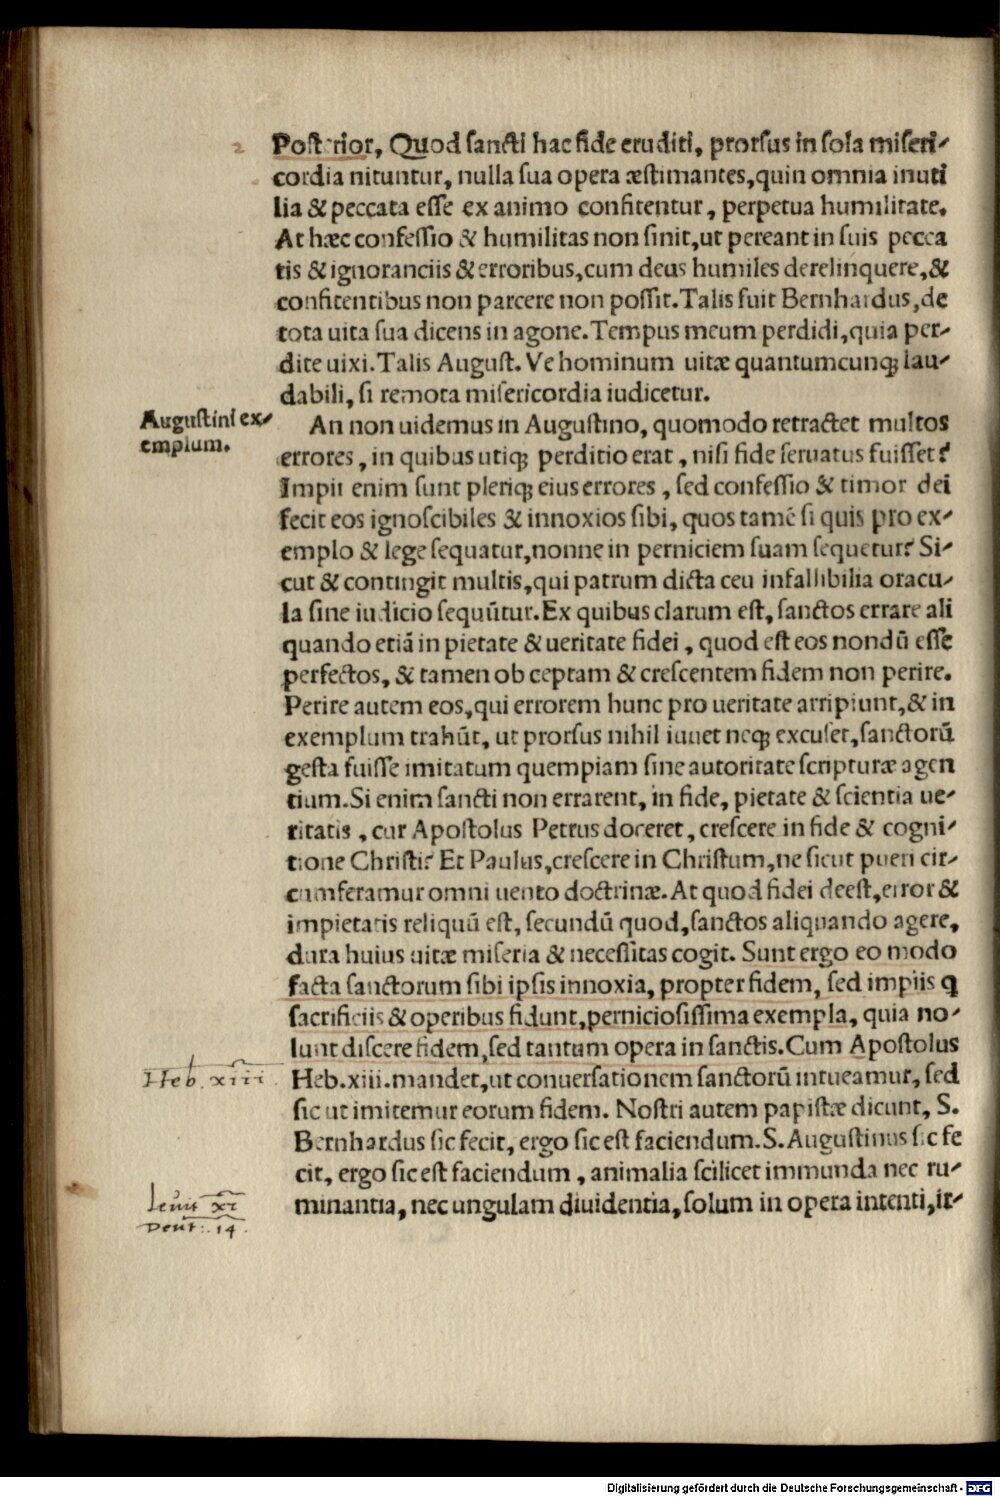 2 Posterior, Quod sancti hac fide eruditi, prorsus in sola miseri-
cordia nituntur, nulla sua opera æstimantes, quin omnia inuti
lia & peccata esse ex animo confitentur, perpetua humilitate.
At hæc confessio & humilitas non sinit, ut pereant in suis pecca
tis & ignoranciis & erroribus, cum deus humiles derelinquere, &
confitentibus non parcere non possit. Talis fuit Bernhardus, de
tota uita sua dicens in agone. Tempus meum perdidi, quia per-
dite uixi. Talis August. Ve hominum uitæ quantumcunq; lau-
dabili, si remota misericordia iudicetur.
Augustini ex-
emplum.
An non uidemus in Augustino, quomodo retractet multos
errores, in quibus utiq; perditio erat, nisi fide seruatus fuisset?
Impii enim sunt pleriq; eius errores, sed confessio & timor dei
fecit eos ignoscibiles & innoxios sibi, quos tamē si quis pro ex-
emplo & lege sequatur, nonne in perniciem suam sequetur? Si-
cut & contingit multis, qui patrum dicta ceu infallibilia oracu-
la sine iudicio sequūtur. Ex quibus clarum est, sanctos errare ali
quando etiā in pietate & ueritate fidei, quod est eos nondū esse
perfectos, & tamen ob ceptam & crescentem fidem non perire.
Perire autem eos, qui errorem hunc pro ueritate arripiunt, & in
exemplum trahūt, ut prorsus nihil iuuet neq; excuset, sanctorū
gesta fuisse imitatum quempiam sine autoritate scripturæ agen
tium. Si enim sancti non errarent, in fide, pietate & scientia ue-
ritatis, cur Apostolus Petrus doceret, crescere in fide & cogni-
tione Christi? Et Paulus, crescere in Christum, ne sicut pueri cir-
cumferamur omni uento doctrinæ. At quod fidei deest, error &
impietatis reliquū est, secundū quod, sanctos aliquando agere,
dura huius uitæ miseria & necessitas cogit. Sunt ergo eo modo
facta sanctorum sibi ipsis innoxia, propter fidem, sed impiis q
sacrificiis & operibus fidunt, perniciosissima exempla, quia no-
lunt discere fidem, sed tantum opera in sanctis. Cum Apostolus
Heb. xiii.
Heb. xiii. mandet, ut conuersationem sanctorū intueamur, sed
sic ut imitemur eorum fidem. Nostri autem papistæ dicunt, S.
Bernhardus sic fecit, ergo sic est faciendum. S. Augustinus sic fe
cit, ergo sic est faciendum, animalia scilicet immunda nec ru-
Leuit xi
Deut: 14.
minantia, nec ungulam diuidentia, solum in opera intenti, it-
Digitalisierung gefördert durch die Deutsche Forschungsgemeinschaft - DFG